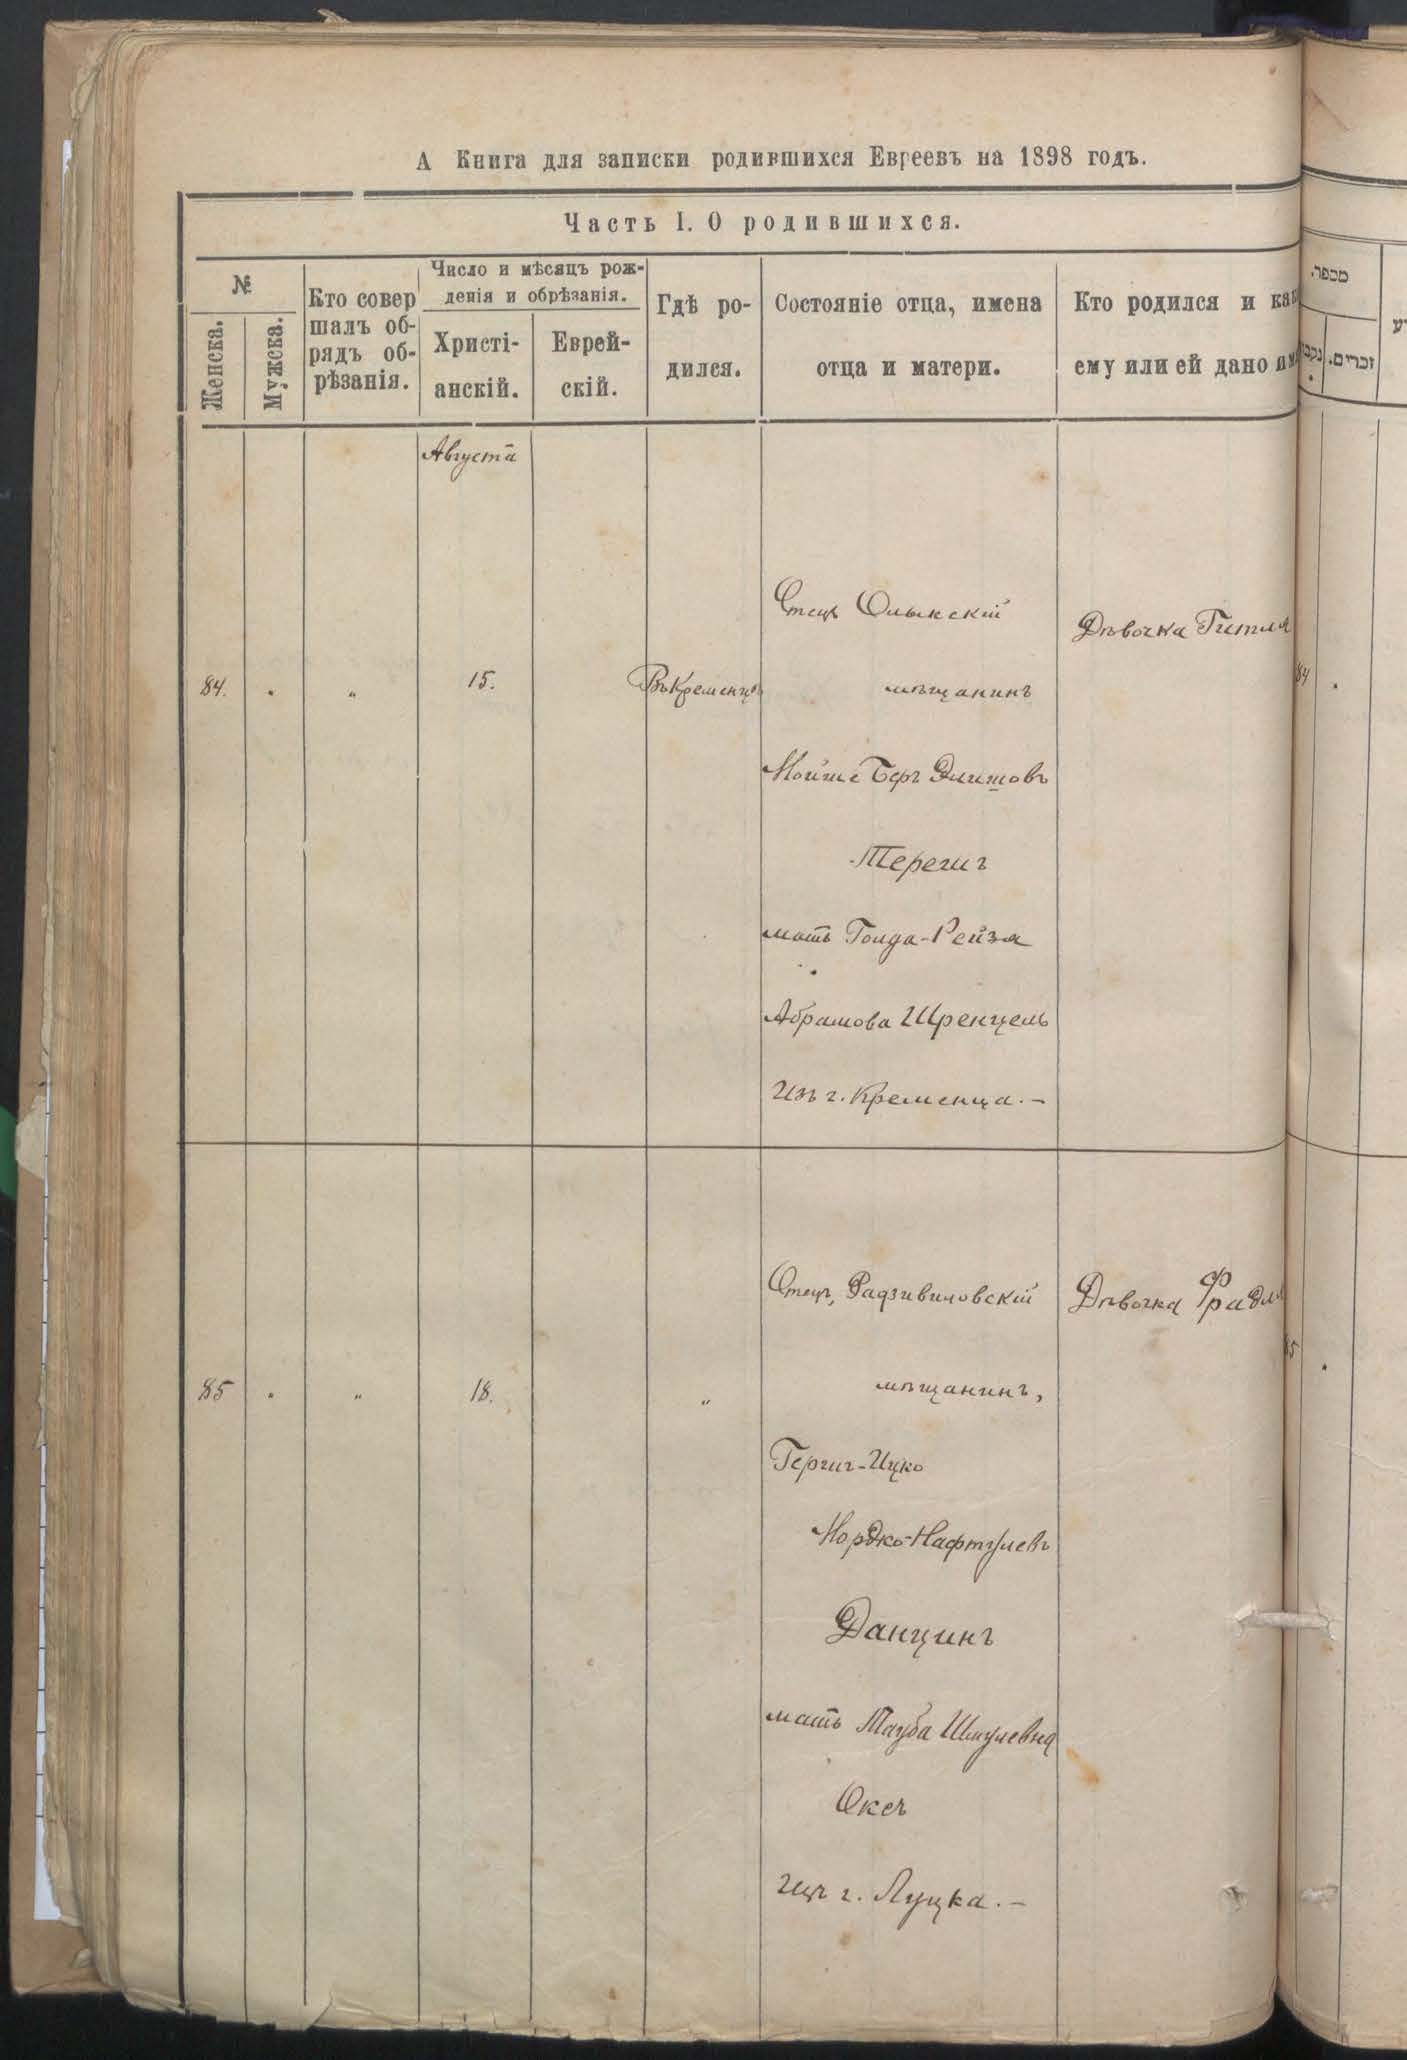 А Книга для записки родившихся Евреевъ на 1898 годъ.
Часть I. О родившихся.
№
Женска.
Мужска.
Кто совер
шалъ об-
рядъ об-
рѣзанія.
Число и мѣсяцъ рож-
денія и обрѣзанія.
Христі-
анскій.
Еврей-
скій.
Гдѣ ро-
дился.
Состояніе отца, имена
отца и матери.
Кто родился и как
ему или ей дано им
מספר.
נקבו
זכרים.
Августа
84.
"
15.
Въ Кременцѣ
Отецъ Олыкскій
мѣщанинъ
Мойше Беръ Элишовъ
мать Голда-Рейзя
Абрамова Шренцель
Изъ г. Кременца.-
Дѣвочка Гитля
84
85
"
18.
"
Отецъ, Радзивиловскій
мѣщанинъ,
Гершъ-Ицко
Мордко-Нафтулевъ
Данцинъ
мать Тауба Шмулевна
Оксъ
Изъ г. Луцка.-
Дѣвочка Фрадля
85